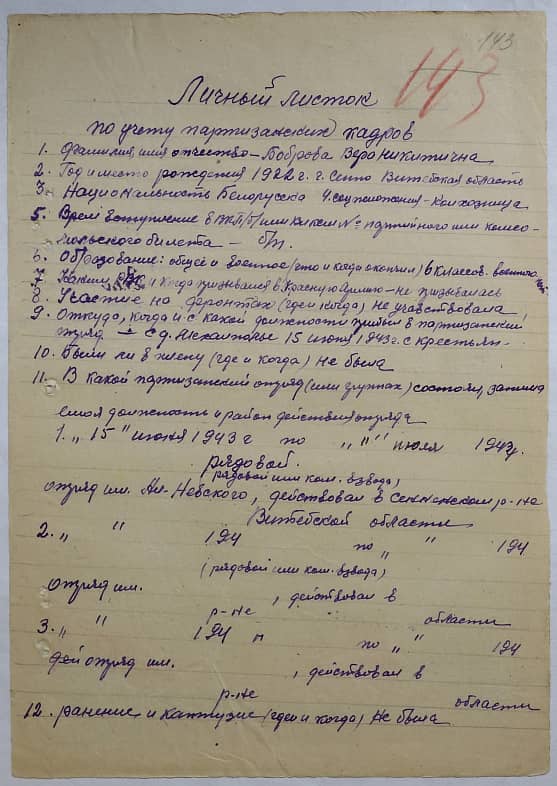 143
143
Личный листок
по учету партизанских кадров
1. Фамилия, имя отчество – Боброва Вера Никитична
2. Год и место рождения 1922 г. г. Сенно Витебская область
3. Национальность Белорусска 4. соц положения – колхозница
5. Время вступление в ВКП(б) или какие № партийного или комсо-
мольского билета – б/п.
6. Образование: общее и военное (что и когда окончил) 6 классов.
7. Каким РВК и когда призывался в Красную Армию – не призывалась
8. Участие на фронтах (где и когда) не учавствовала
9. Откуда, когда и с какой должности прибыл в партизанский
отряд – с д. 15 июня 1943 г. с крестьян.
10. Были ли в плену (где и когда) не была
11. В какой партизанский отряд (или группах) состоял, занима
емая должность и район действия отряда
1. „ 15 " июня 1943 г по „ " июля 1943 г.
рядовой.
(рядовой или ком. взвода)
отряд им. Ал-Невского, действовал в Сенненском р-не
Витебской области
2. „ " 194 по „ " 194
(рядовой или ком. взвода)
отряд им. , действовал в
р-не области
3. „ " 194 по „ " 194
отряд им. , действовал в
р-не области
12. ранение и контузие (где и когда) не была